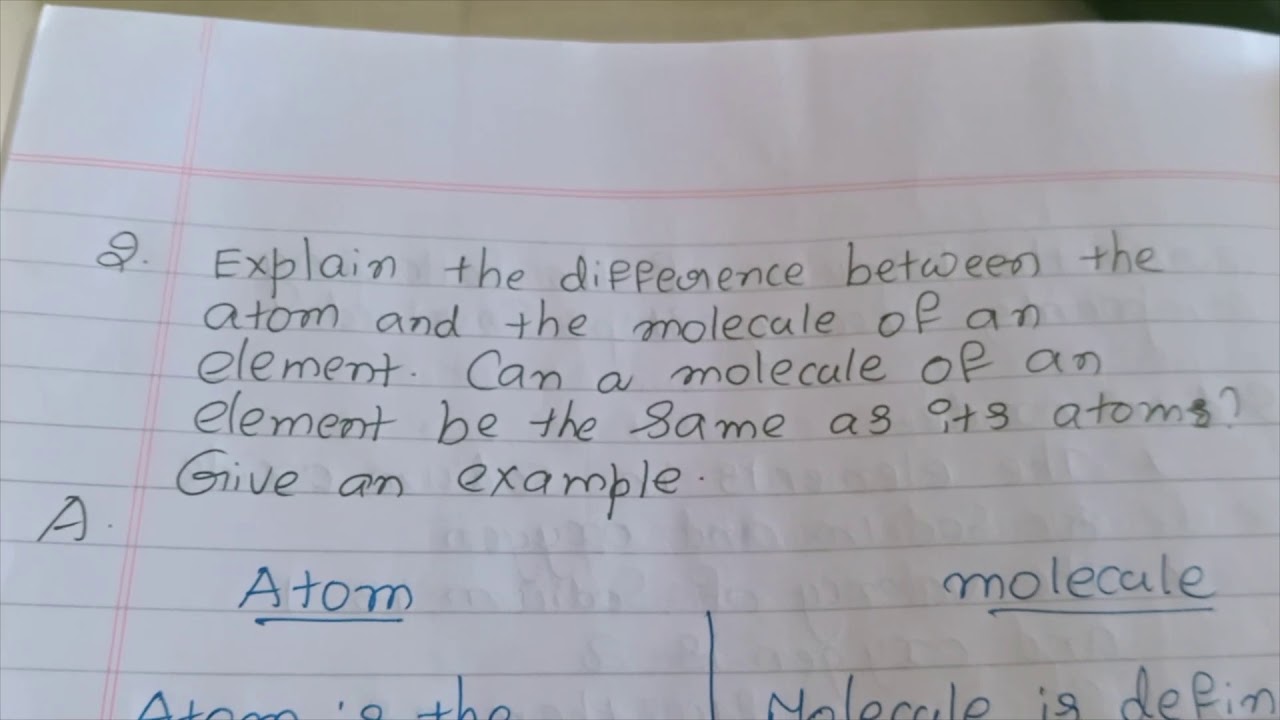 Q. Explain the difference between the
atom and the molecule of an
element. Can a molecule of an
element be the same as its atoms?
Give an example.
A.
Atom molecule
Atom is the Molecule is defin